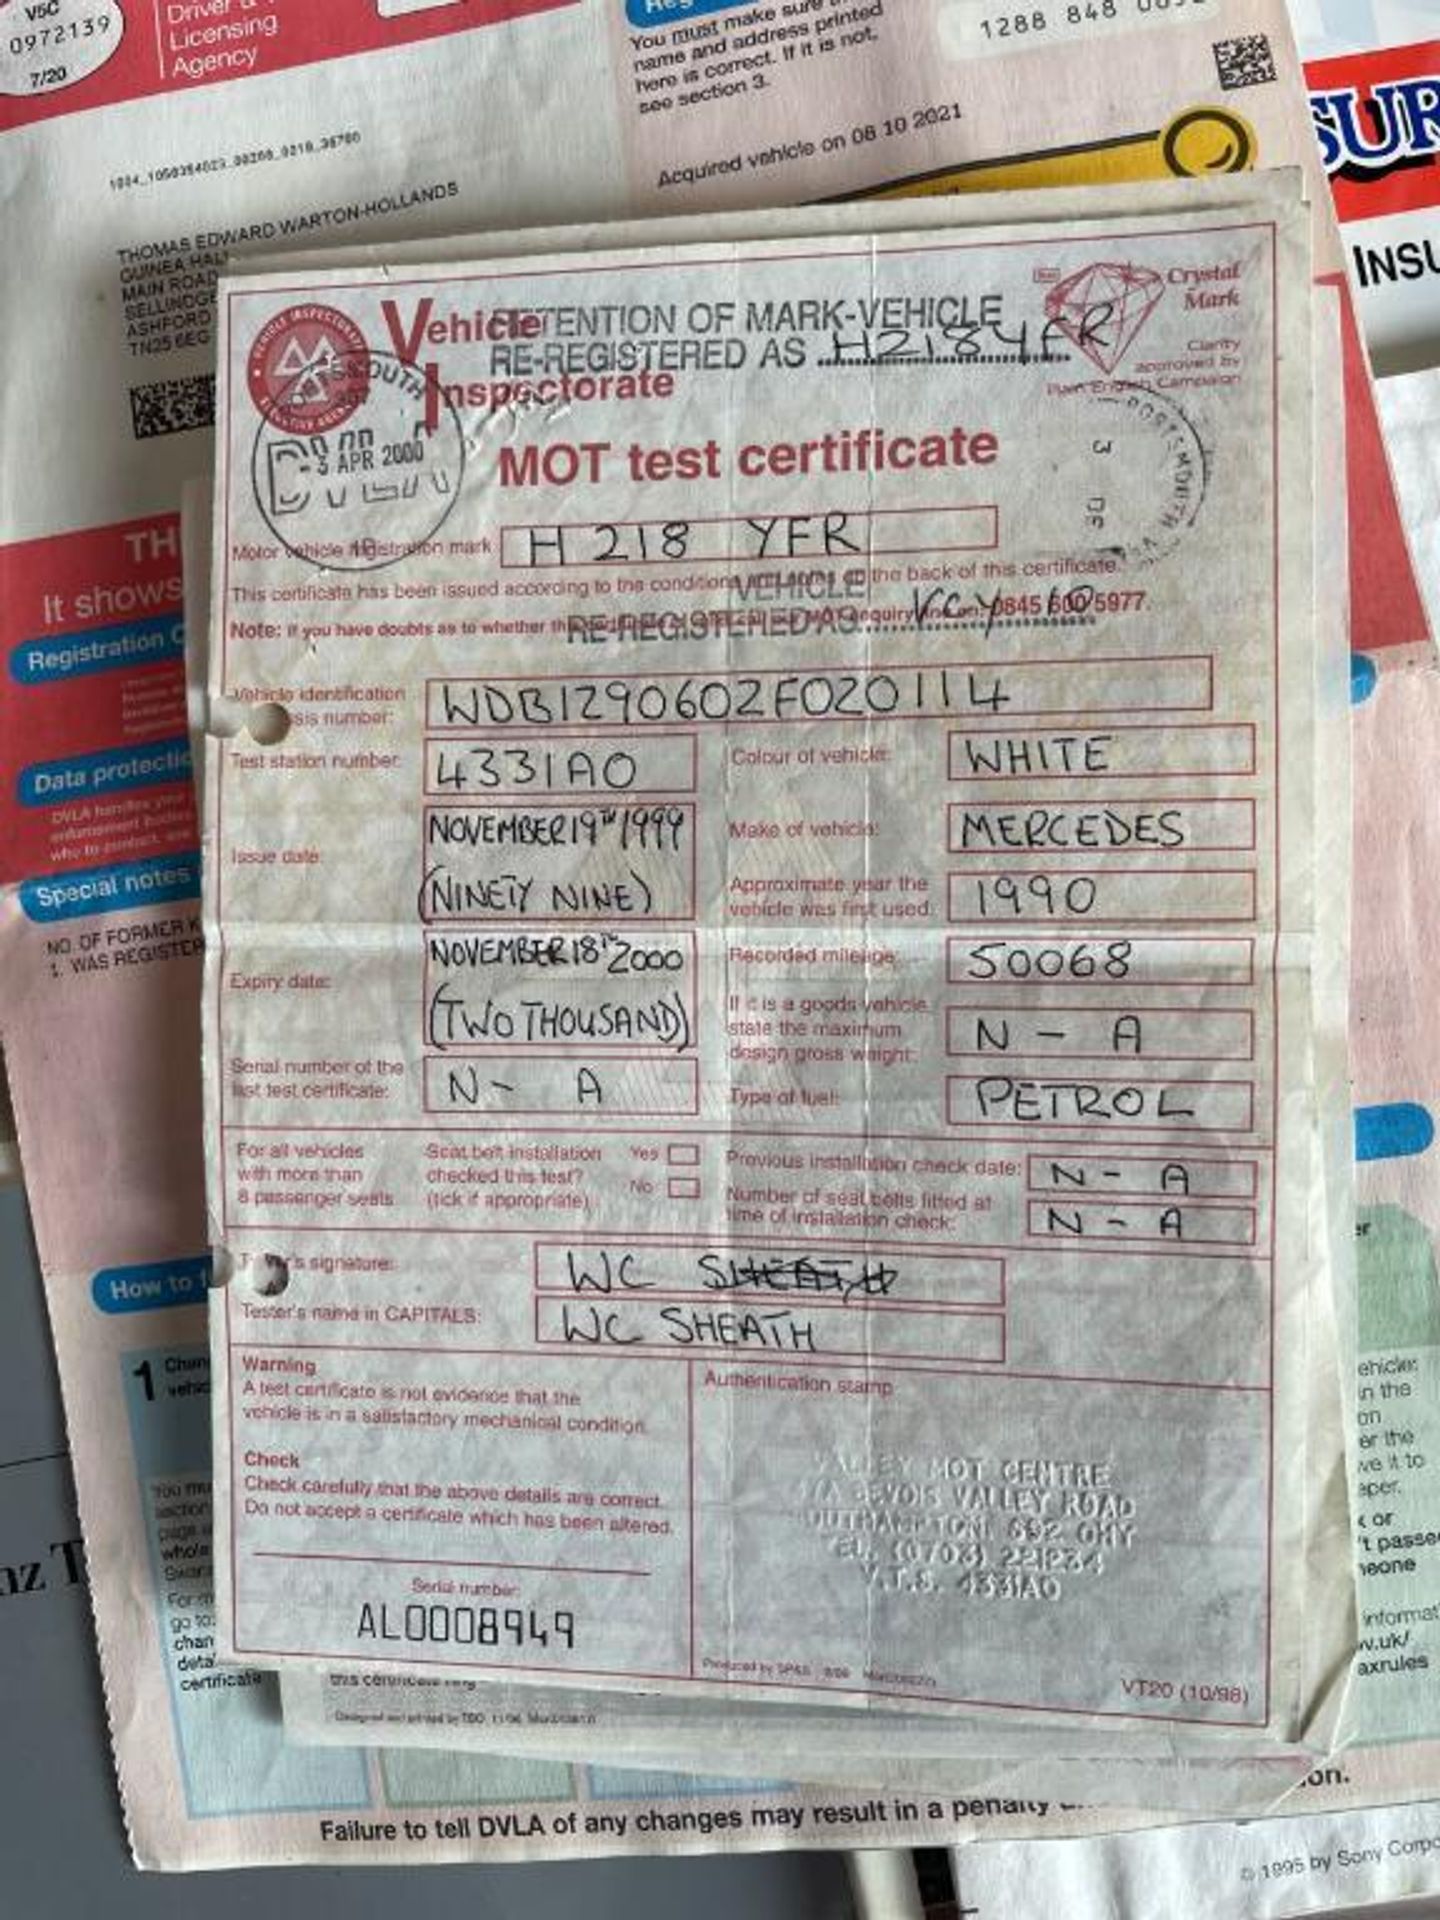 V5C
0972139
7/20
Driver &
Licensing
Agency
You must make sure
name and address printed
here is correct. If it is not,
see section 3.
1288 848
Acquired vehicle on 08 10 2021
SUR
INSU
THOMAS EDWARD WARTON-HOLLANDS
GUINEA HALL
MAIN ROAD
SELLINDGE
ASHFORD
TN25 6EG
Vehicle
Inspectorate
RETENTION OF MARK-VEHICLE
RE-REGISTERED AS H218YFR
Crystal
Mark
Clarity
approved by
Plain English Campaign
-3 APR 2000
PORTSMOUTH
MOT test certificate
Motor vehicle registration mark H 218 YFR
This certificate has been issued according to the conditions and notes on the back of this certificate.
VEHICLE
RE-REGISTERED AS VCY 10
Note: If you have doubts as to whether enquiry line on: 0845 600 5977.
Vehicle identification
sis number: WDB1290602F020114
Test station number: 4331AO
Colour of vehicle: WHITE
Issue date: NOVEMBER 19TH 1999
(NINETY NINE)
Make of vehicle: MERCEDES
Approximate year the
vehicle was first used: 1990
Expiry date: NOVEMBER 18TH 2000
(TWO THOUSAND)
Recorded mileage: 50068
If it is a goods vehicle
state the maximum
design gross weight: N - A
Serial number of the
last test certificate: N - A
Type of fuel: PETROL
For all vehicles
with more than
8 passenger seats
Seat belt installation
checked this test?
(tick if appropriate)
Yes
No
Previous installation check date: N - A
Number of seat belts fitted at
time of installation check: N - A
's signature: WC SHEATH
Tester's name in CAPITALS: WC SHEATH
Warning
A test certificate is not evidence that the
vehicle is in a satisfactory mechanical condition.
Check
Check carefully that the above details are correct.
Do not accept a certificate which has been altered.
Serial number:
AL0008949
Authentication stamp
VALLEY MOT CENTRE
BEVOIS VALLEY ROAD
SOUTHAMPTON
TEL. (0703) 221234
V.T.S. 4331AO
VT20 (10/98)
TH
It shows
Registration C
Data protectio
Special notes
NO. OF FORMER K
1. WAS REGISTER
How to
1
go to:
chan
detai
certificate
ehicle:
in the
on
er the
ve it to
aper.
k or
't passe
neone
informat
v.uk/
axrules
on.
Failure to tell DVLA of any changes may result in a penalty
© 1995 by Sony Corpo